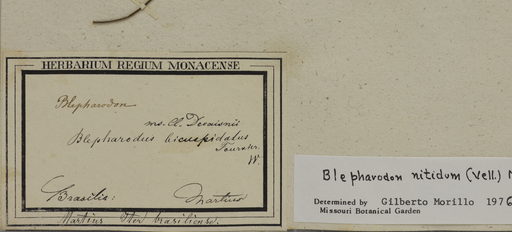 HERBARIUM REGIUM MONACENSE
Blepharodon
ms. Cl. Decaisnii
Blepharodus bicuspidatus
Fournier.
W.
Brasilia: Martius
Martius Iter brasiliense.
Blepharodon nitidum (Vell.)
Determined by Gilberto Morillo 1976
Missouri Botanical Garden